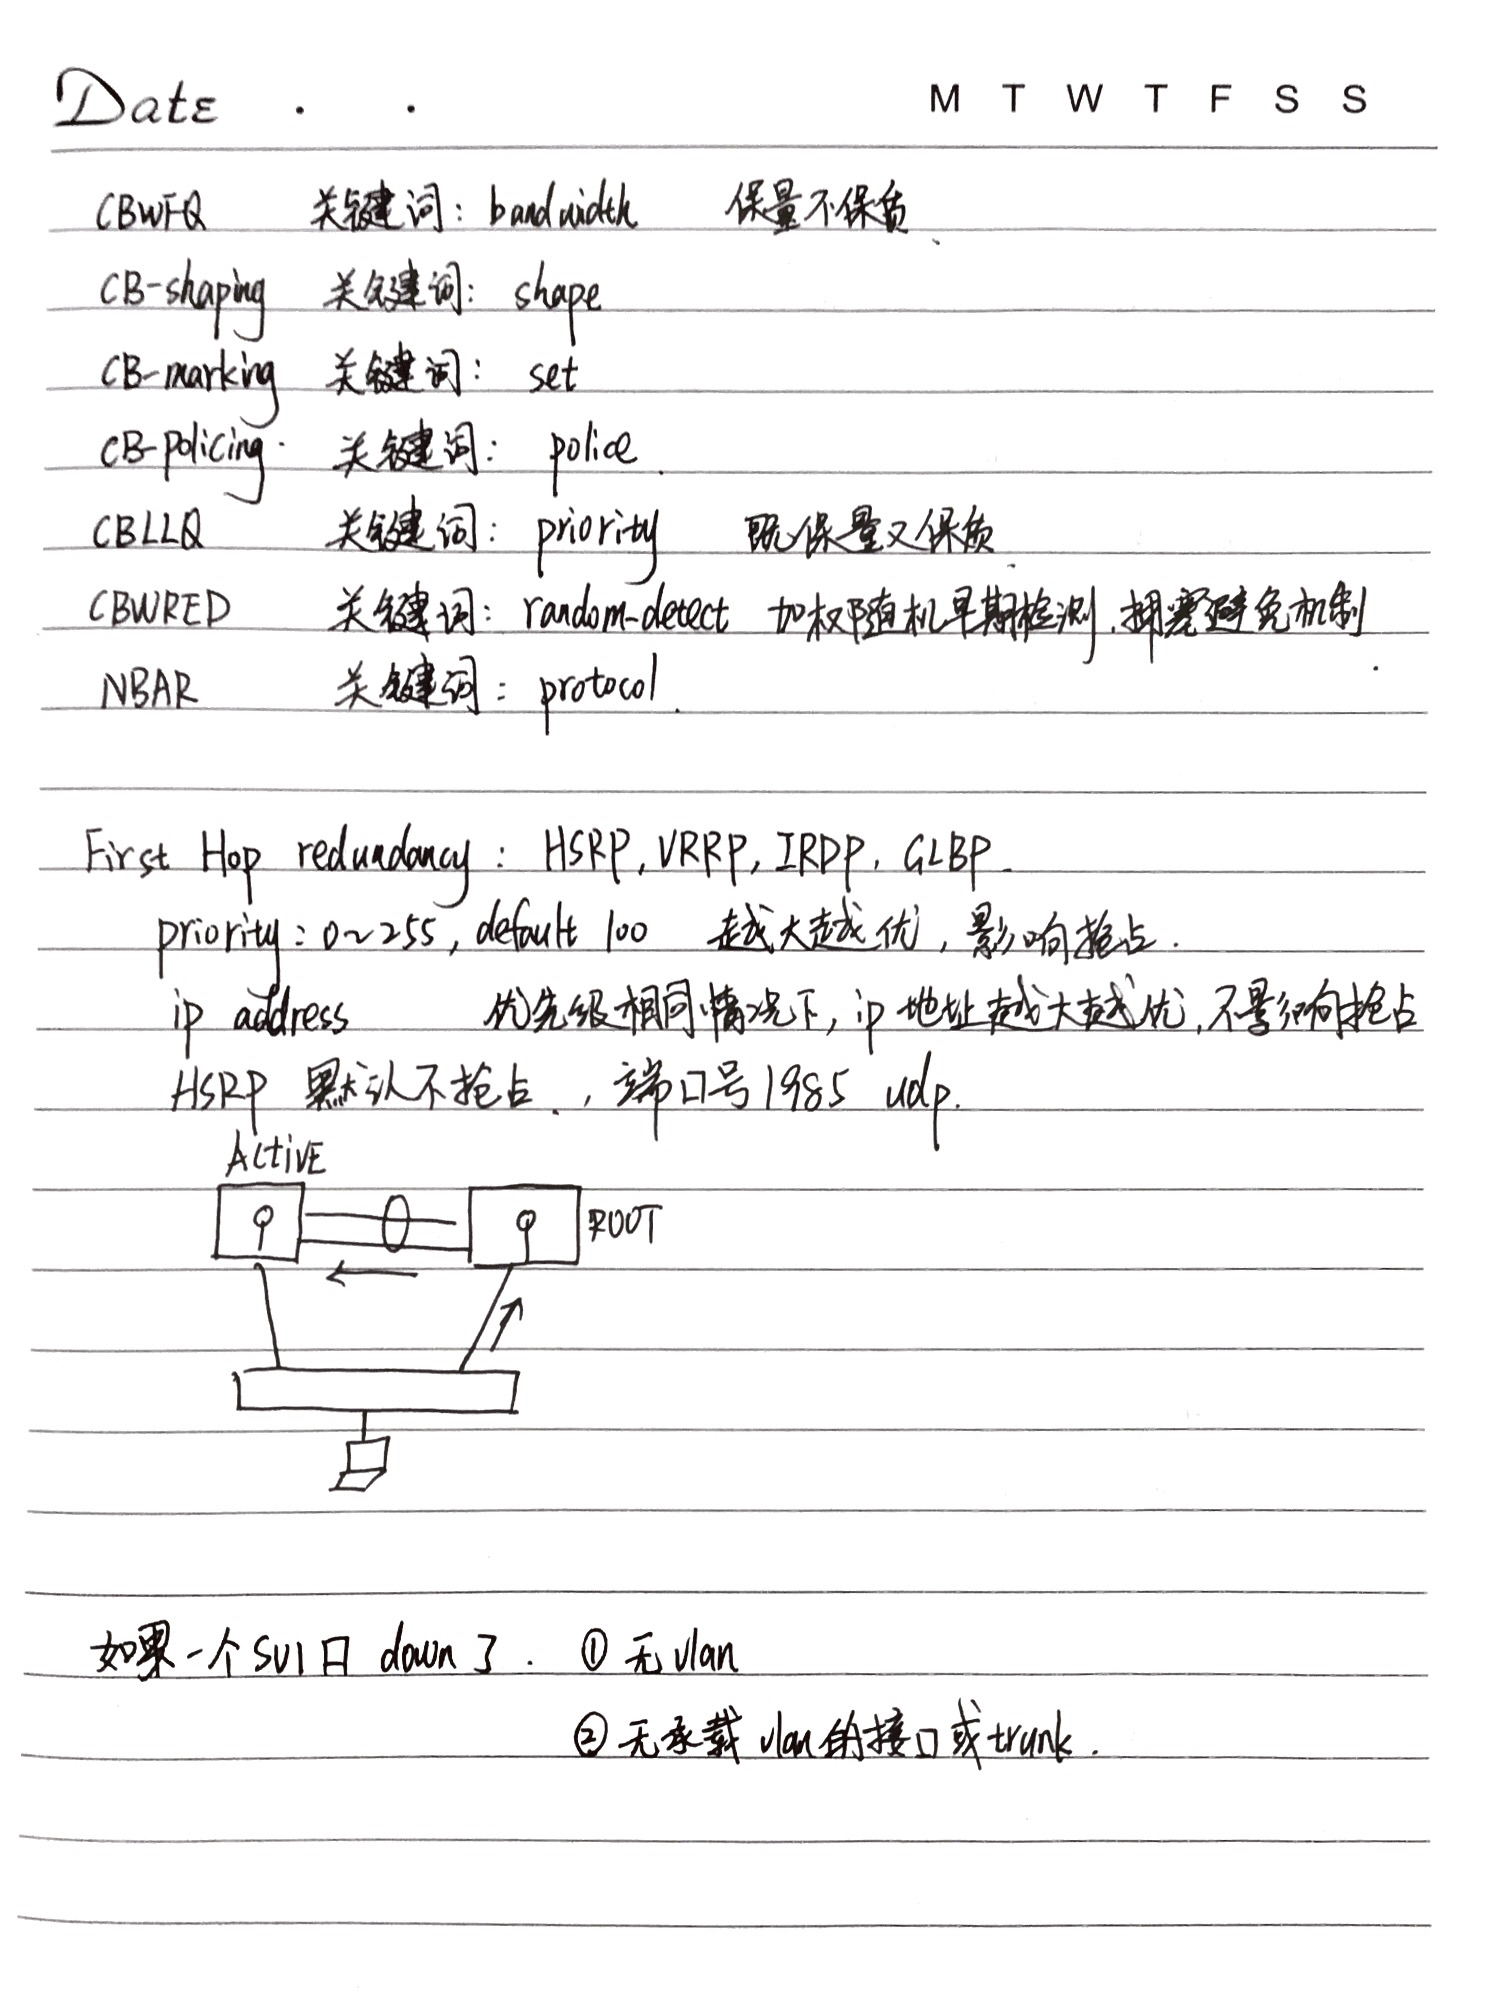 Date . . M T W T F S S
CBWFQ 关键词: bandwidth 保量不保质
CB-shaping 关键词: shape
CB-marking 关键词: set
CB-policing 关键词: police.
CBLLQ 关键词: priority 既保量又保质
CBWRED 关键词: random-detect 加权随机早期检测, 拥塞避免机制.
NBAR 关键词: protocol.
First Hop redundancy: HSRP, VRRP, IRDP, GLBP.
priority: 0~255, default 100 越大越优, 影响抢占.
ip address 优先级相同情况下, ip 地址越大越优, 不影响抢占
HSRP 默认不抢占., 端口号1985 udp.
ACtivE
ROOT
如果一个SVI口 down了. ① 无vlan
② 无承载 vlan的接口或trunk.